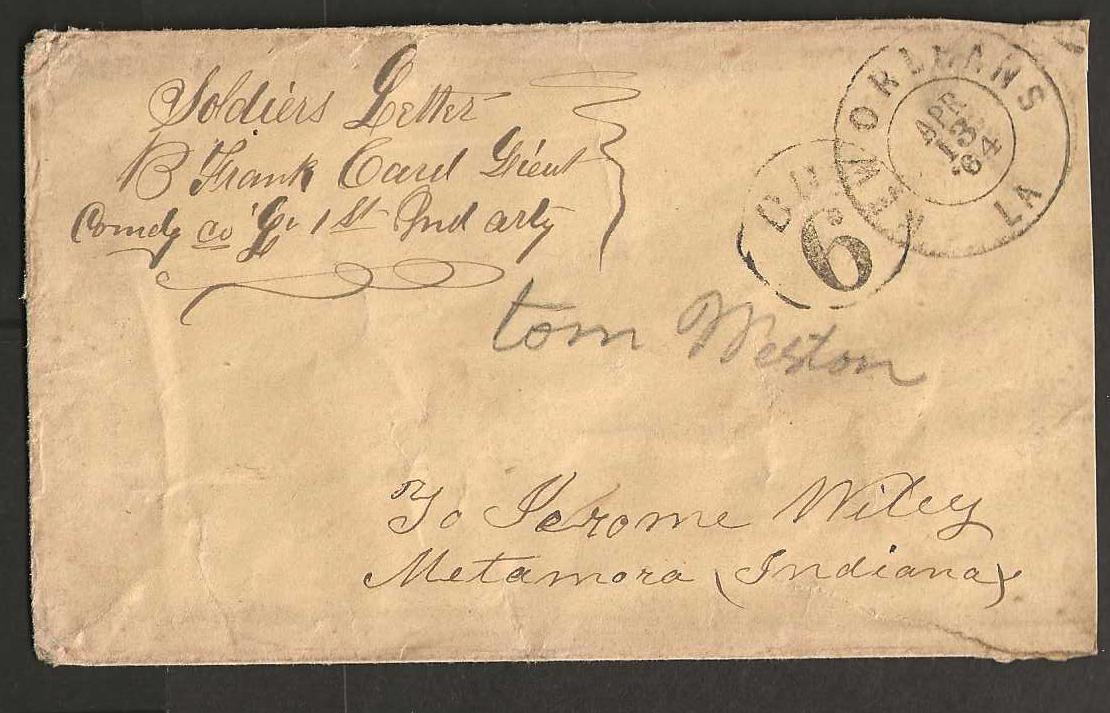 Soldiers Letter
B Frank Card Lieut
Comdg co G 1st Ind arty
NEW ORLEANS LA
APR
13
'64
DUE
6
tom Weston
To Jerome Wiley
Metamora (Indiana)